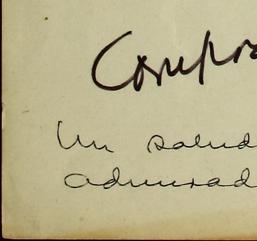 Compos
Un salud
admirad